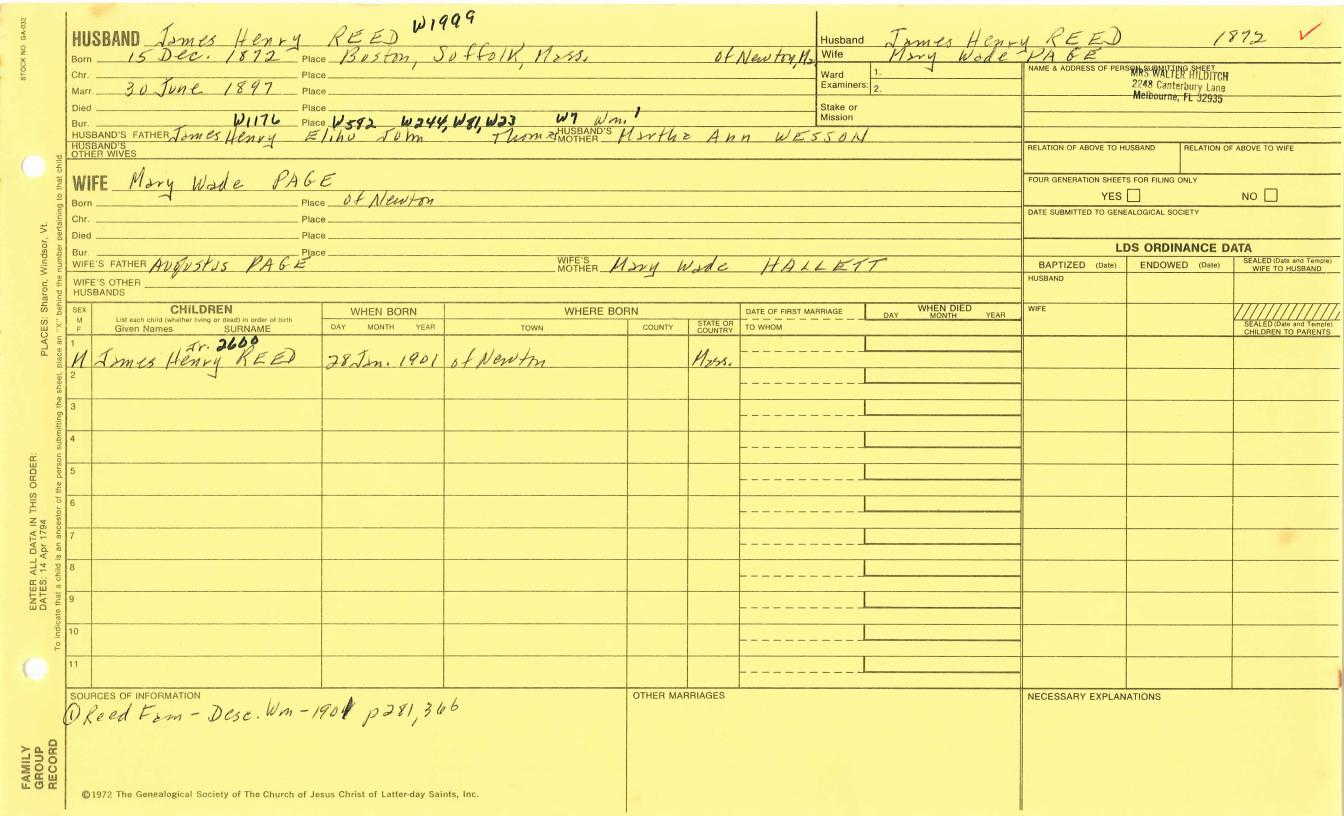 STOCK NO. GA-032
PLACES: Sharon, Windsor, Vt.
ENTER ALL DATA IN THIS ORDER:
DATES: 14 Apr 1794
To indicate that a child is an ancestor of the person submitting the sheet, place an "X" behind the number pertaining to that child.
FAMILY
GROUP
RECORD
HUSBAND James Henry REED W1999
Born 15 Dec. 1872 Place Boston, Suffolk, Mass. of Newton, Ma.
Chr. Place
Marr. 30 June 1897 Place
Died Place
Bur. W1176 Place W582 W244, W81, W23 W7 Wm. 1
HUSBAND'S FATHER James Henry Elihu John Thomas HUSBAND'S MOTHER Martha Ann WESSON
HUSBAND'S OTHER WIVES
WIFE Mary Wade PAGE
Born Place of Newton
Chr. Place
Died Place
Bur. Place
WIFE'S FATHER Augustus PAGE WIFE'S MOTHER Mary Wade HALLETT
WIFE'S OTHER HUSBANDS
Husband James Henry REED 1872 ✓
Wife Mary Wade PAGE
Ward Examiners: 1.
2.
Stake or Mission
NAME & ADDRESS OF PERSON SUBMITTING SHEET
MRS WALTER HILDITCH
2248 Canterbury Lane
Melbourne, FL 32935
RELATION OF ABOVE TO HUSBAND RELATION OF ABOVE TO WIFE
FOUR GENERATION SHEETS FOR FILING ONLY
YES NO
DATE SUBMITTED TO GENEALOGICAL SOCIETY
LDS ORDINANCE DATA
BAPTIZED (Date) ENDOWED (Date) SEALED (Date and Temple) WIFE TO HUSBAND
HUSBAND
WIFE
SEALED (Date and Temple) CHILDREN TO PARENTS
SEX M F CHILDREN List each child (whether living or dead) in order of birth Given Names SURNAME
WHEN BORN DAY MONTH YEAR
WHERE BORN TOWN COUNTY STATE OR COUNTRY
DATE OF FIRST MARRIAGE TO WHOM
WHEN DIED DAY MONTH YEAR
1 M James Henry Jr. 2600 REED 28 Jan. 1901 of Newton Mass.
2
3
4
5
6
7
8
9
10
11
SOURCES OF INFORMATION
① Reed Fam - Desc. Wm - 1901 p281, 366
OTHER MARRIAGES
NECESSARY EXPLANATIONS
©1972 The Genealogical Society of The Church of Jesus Christ of Latter-day Saints, Inc.